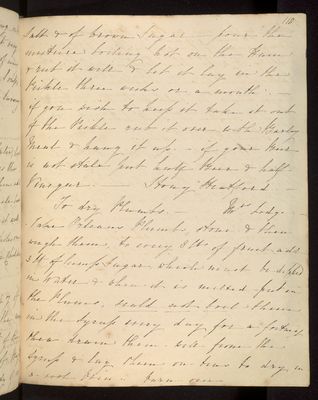 110
Salt & of brown Sugar pour the
mixture boiling hot on the Ham
& rub it well & let it lay in the
Pickle three weeks or a month. —
if you wish to keep it take it out
of the Pickle rub it over with Barley
Meal & hang it up — if your Beer
is not stale put half Beer & half
Vinegar. —
To dry Plumbs. — Mrs Lodge —
Take Orleans Plumbs, stone & then
weigh them, to every 8 lb of fruit, add
3 lb of lump Sugar, which must be dipped
in Water & when it is melted put in
the Plums, scald not boil them
in the Syrup every day for a fortnight
then drain them well from the
Syrup & lay them on tins to dry, in
a cool Oven — turn